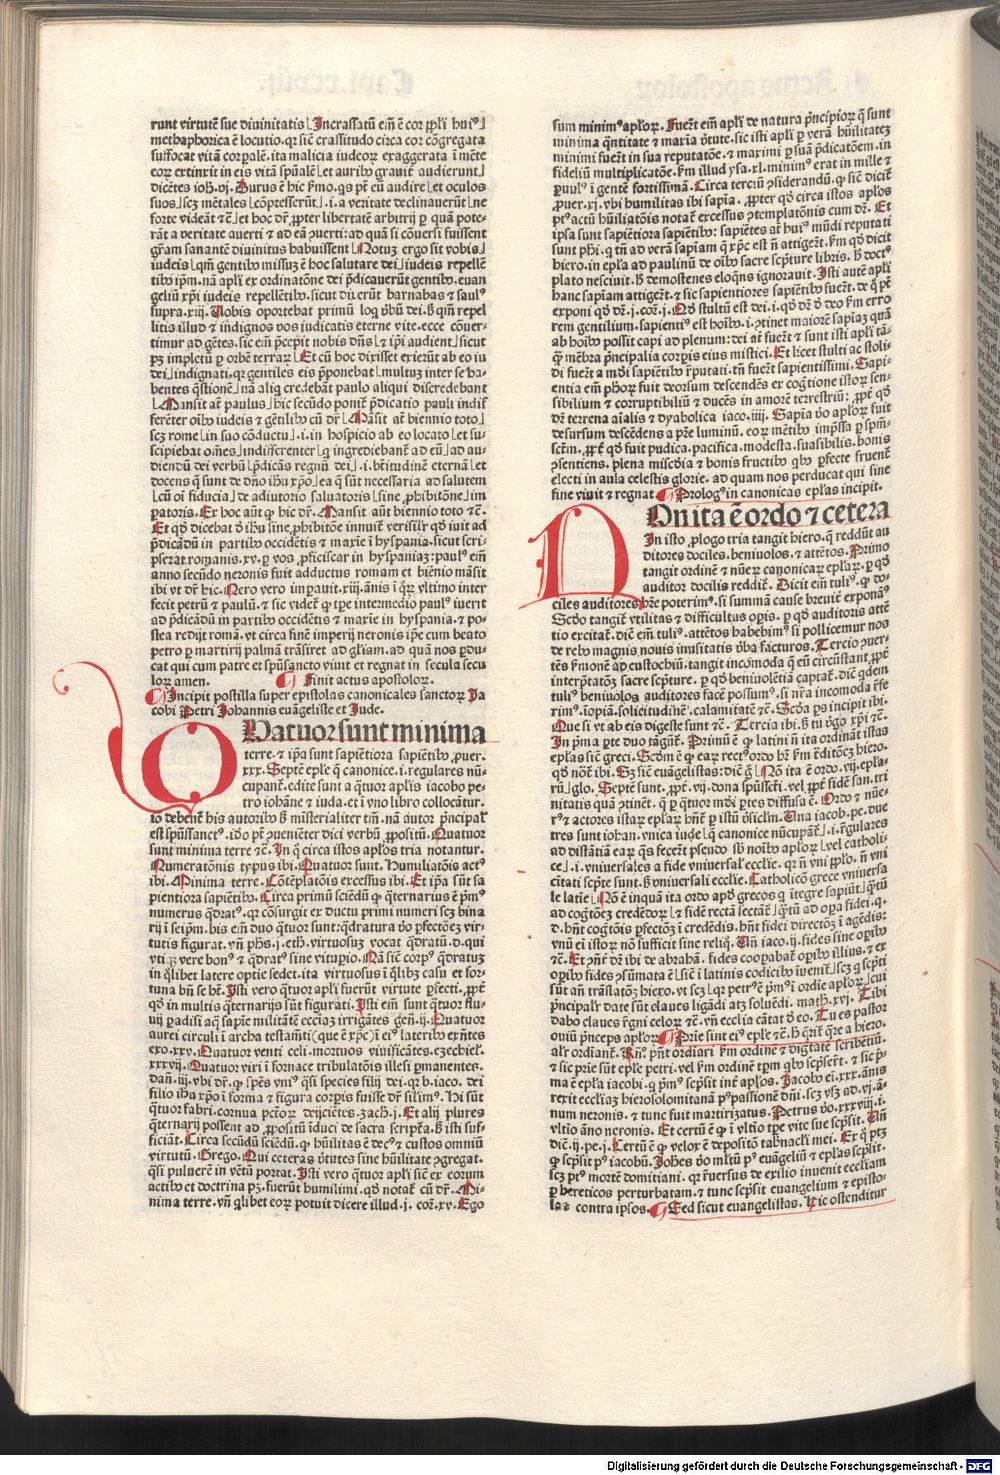 runt virtutē sue divinitatis Incrassatū em̄ ē cor ppl̄i huiꝰ
methaphorica ē locutio. qꝛ sic̄ crassitudo circa cor cōgregata
suffocat vitā corpalē. ita malicia iudeoꝝ exaggerata ī mēte
eoꝝ extinxit in eis vitā spūalē et auribꝰ gravit̄ audierunt
dicētes ioh̄. vj.
suos scꝫ mētales cōpresserūt .i. a veritate declinauerūt ne
forte videāt ⁊c̄ et hoc dr̄.
rāt a veritate auerti ⁊ ad eā ꝯuerti: ad quā si cōuersi fuissent
gr̄am sanantē divinitus habuissent Notuꝫ ergo sit vobis
iudeis qm̄ gentibꝰ missuꝫ ē hoc salutare dei iudeis repellē
tibꝰ ip̄m. nā apl̄i ex ordinatōne dei p̄dicauerūt gentibꝰ. euan
geliū xp̄i iudeis repellētibꝰ. sicut dixerūt barnabas ⁊ saulꝰ
supra. xiij. Uobis oportebat primū loq̄ ꝟbū dei. sꝫ qm̄ repel
litis illud ⁊ īdignos vos iudicatis eterne vite. ecce cōuer-
timur ad gētes. sic em̄ p̄cepit nobis dn̄s ⁊ ip̄i audient sicut
pꝫ impletū ꝑ orbē terraꝝ Et cū hoc dixisset exierūt ab eo iu
dei indignati. qꝛ gentiles eis p̄ponebat multuꝫ inter se ha-
bentes q̄stionē nā aliq̄ credebāt paulo aliqui discredebant
Mansit at̄ paulus hic secūdo ponit̄ p̄dicatio pauli indif
ferēter oībꝰ iudeis ⁊ gētilibꝰ cū dr̄ Māsit at̄ biennio toto
scꝫ rome in suo cōductu .i. in hospicio ab eo locato et su-
scipiebat om̄es indifferenter q̄ ingrediebant̄ ad eū ad au-
diendū dei verbū p̄dicās regnū dei .i. bt̄itudinē eternā et
docens q̄ sunt de dn̄o ihū xp̄o ea q̄ sūt necessaria ad salutem
cū oī fiducia de adiutorio saluatoris sine ꝓhibitōne im
ꝑatoris. Ex hoc aūt ꝙ hic dr̄. Mansit aūt biennio toto ⁊c̄.
Et qꝺ dicebat ꝺ ihū sine ꝓhibitōne innuit̄ verisil'r qꝺ iuit ad
p̄dicādū in partibꝰ occidētis ⁊ maxie ī hyspania. sicut scri-
pserat romanis. xv. ꝑ vos ꝓficiscar in hyspaniaꝫ: paulꝰ em̄
anno secūdo neronis fuit adductus romam et biēnio māsit
ibi vt dr̄ hic. Nero vero imꝑauit. xiij. ānis
fecit petrū ⁊ paulū. ⁊ sic videt̄ ꝙ tp̄e intermedio paulꝰ iuerit
ad p̄dicādū in partibꝰ occidētis ⁊ maxie in hyspania. ⁊ po-
stea redijt romā. vt circa finē imperij neronis ip̄e cum beato
petro ꝑ martirij palmā trāsiret ad gl̄iam. ad quā nos ꝑdu-
cat qui cum patre et spūsancto viuit et regnat in secula secu
loꝝ amen. Finit actus apostoloꝝ.
Incipit postilla super epistolas canonicales sanctoꝝ Ja
cobi Petri Johannis euāgeliste et Jude.
QUatuor sunt minima
terre. ⁊ ip̄a sunt sapiētiora sapiētibꝰ ꝓuer.
xxx. Septē ep̄le q̄ canonice .i. regulares nū-
cupant̄. edite sunt a q̄tuor apl̄is iacobo pe-
tro iohāne ⁊ iuda. et ī vno libro collocātur.
est spūssanctꝰ. iꝺo pt̄ ꝯueniēter dici verbū ꝓpositū. Quatuor
sunt minima terre ⁊c̄. In q̄ circa istos apl̄os tria notantur.
Numeratōnis typus ibi. Quatuor sunt. Humiliatōis actꝰ
ibi. Minima terre. Cōtēplatōis excessus ibi. Et ip̄a sūt sa
pientiora sapiētibꝰ. Circa primū sciēdū ꝙ q̄ternarius ē p̄mꝰ
numerus q̄dratꝰ. qꝛ cōsurgit ex ductu primi numeri scꝫ bina
rij ī seip̄m. bis em̄ duo q̄tuor sunt: q̄dratura ꝟo ꝑfectōeꝫ vir-
tutis figurat. vn̄ ph̄s .j. eth̄. virtuosuꝫ vocat q̄dratū. ꝺ. qui
vti ꝙ vere bonꝰ ⁊ q̄dratꝰ sine vituꝑio. Nā sic̄ corpꝰ q̄dratuꝫ
in q̄libet latere optie sedet. ita virtuosus ī q̄libꝫ casu et for-
tuna bn̄ se hꝫ. Isti vero q̄tuor apl̄i fuerūt virtute ꝑfecti. ꝓpt̄
qꝺ in multis q̄ternarijs sūt figurati. Isti em̄ sunt q̄tuor flu-
uij ꝑadisi aq̄ sapie militātē eccl̄iaꝫ irrigātes gen̄. ij. Quatuor
aurei circuli ī archa testam̄ti (que ē xp̄c) ī eiꝰ lateribꝰ exn̄tes
exo. xxv. Quatuor venti celi. mortuos viuificātes. ezechiel'.
xxxvij. Quatuor viri ī fornace tribulatōis illesi ꝑmanentes.
dan̄. iij. vbi dr̄. ꝙ spēs vniꝰ q̄si species filij dei. qꝛ b. iaco. dei
filio ihū xp̄o ī forma ⁊ figura corꝑis fuisse dr̄ sil̄imꝰ. Hi sūt
q̄tuor fabri. cornua pctōꝝ deijciētes. zach̄. j. Et alij plures
q̄ternarij possent ad ꝓpositū īduci de sacra scriptā. sꝫ isti suf-
ficiāt. Circa secūdū sciēdū. ꝙ hūilitas ē decꝰ ⁊ custos omniū
virtutū. Grego. Qui ceteras ꝟtutes sine hūilitate ꝯgregat.
q̄si puluerē in vētū portat. Isti vero q̄tuor apl̄i sic̄ ex eorum
actibꝰ et doctrina pꝫ. fuerūt humilimi. qꝺ notat̄ cū dr̄. Mi-
nima terre. vn̄ q̄libet eoꝝ potuit dicere illud .j. cor̄. xv. Ego
sum minimꝰ apl̄oꝝ. Fuer̄t em̄ apl̄i de natura p̄ncipioꝝ q̄ sunt
minima q̄ntitate ⁊ maxīa ꝟtute. sic isti apl̄i ꝑ verā hūilitateꝫ
minimi fuer̄t in sua reputatōe. ⁊ maximi ꝑ suā p̄dicatōem. in
fideliū multiplicatōe. ẜm illud ysa. xl. minimꝰ erat in mille ⁊
ꝑuulꝰ ī gentē fortissimā. Circa terciū ꝯsiderandū. ꝙ sic̄ dicit̄
ꝓuer. xj. vbi humilitas ibi sapīa. ꝓpter qꝺ circa istos apl̄os
ptꝰ actū hūiliatōis notat̄ excessus ꝯtemplatōnis cum dr̄. Et
ipsa sunt sapiētiora sapiētibꝰ: sapiētes at̄ huiꝰ mūdi reputati
sunt ph̄i. q̄ tn̄ ad verā sapīam q̄ xp̄c est n̄ attigeꝝt. ẜm qꝺ dicit
hiero. in ep̄la ad paulinū de oībꝰ sacre scp̄ture libris. hꝰ doctꝰ
plato nesciuit. hꝰ demostenes eloq̄ns ignorauit. Isti autē apl̄i
hanc sapīam attigeꝝt. ⁊ sic sapientiores sapiētibꝰ fuer̄t. de q̄ pt̄
exponi qꝺ dr̄ .j. cor̄. j. Qꝺ stultū est dei .i. qꝺ dr̄ ꝺ deo ẜm erro
rem gentilium. sapientiꝰ est hoībꝰ .i. ꝯtinet maiorē sapīaꝫ quā
ab hoībꝰ possit capi ad plenum: dei at̄ fuer̄t ⁊ sunt isti apl̄i tā-
q̄ mēbra p̄ncipalia corꝑis eius mistici. Et licet stulti ac stoli-
di fuer̄t a mūdi sapiētibꝰ r̄putati. tn̄ fuer̄t sapientissimi. Sapi-
entia em̄ ph̄oꝝ fuit deorsum descendēs ex coḡtione istoꝝ sen-
sibilium ⁊ corruptibiliū ⁊ ducēs in amorē terrestriū: ꝓpt̄ qꝺ
dr̄ terrena aīalis ⁊ dyabolica iaco. iiij. Sapīa ꝟo apl̄oꝝ fuit
desursum descēdens a pr̄e luminū. eoꝝ mētibꝰ imp̄ssa ꝑ sp̄m-
sct̄m. ꝓpt̄ qꝺ fuit pudica. pacifica. modesta. suasibilis. bonis
ꝯsentiens. plena miscd̄ia ⁊ bonis fructibꝰ qbꝰ ꝑfecte fruent̄
electi in aula celestis glorie. ad quam nos perducat qui sine
fine viuit ⁊ regnat. Prologꝰ in canonicas ep̄las incipit.
NOn ita ē ordo ⁊ cetera
In isto ꝓlogo tria tangit hiero. q̄ reddūt au
ditores dociles. beniuolos. ⁊ attētos. Primo
tangit ordinē ⁊ nūeꝝ canonicaꝝ ep̄laꝝ. ꝑ qꝺ
auditor docilis reddit̄. Dicit em̄ tuliꝰ. ꝙ do-
ciles auditores hr̄e poterimꝰ. si summā cause breuit̄ exponaꝰ
Scd̄o tangit̄ vtilitas ⁊ difficultus oꝑis. ꝑ qꝺ auditoris attē
tio excitat̄. dic̄ em̄ tuliꝰ. attētos habebimꝰ si pollicemur nos
de rebꝰ magnis nouis inusitatis ꝟba facturos. Tercio ꝯuer-
tēs ẜmonē ad eustochiū. tangit incōmoda q̄ eū circūstant ꝓpt̄
interp̄tatōꝫ sacre scp̄ture. ꝑ qꝺ beniuolētia captat̄. dic̄ qdem
tuliꝰ beniuolos auditores facē possumꝰ. si nr̄a incomoda r̄fe
rimꝰ. iopiā. solicitudinē. calamitatē ⁊c̄. Scd̄a ps incipit ibi.
Que si vt ab eis digeste sunt ⁊c̄. Tercia ibi. Sꝫ tu ꝟgo xp̄i ⁊c̄.
In p̄ma ꝑte duo tāgit̄. Primū ē ꝙ latini n̄ ita ordināt istas
ep̄las sic̄ greci. Scd̄m ē ꝙ eaꝝ rectꝰ ordo hꝫ ẜm ēditōeꝫ hiero.
qꝺ nō ibi. Sꝫ sic̄ euāgelistas: dic̄ g̊ Nō ita ē ordo. vij. ep̄la-
rū glo. Septē sunt. ꝓpt̄. vij. dona spūssc̄ti. vel ꝓpt̄ fidē san. tri
nitatis quā ꝯtinēt. q̄ ꝑ q̄tuor mūdi ꝑtes diffusa ē. Ordo ⁊ nūe-
rꝰ ⁊ actores istaꝝ ep̄laꝝ hn̄t̄ ꝑ istū ꝟsiclm̄. Una iacob. pe. due
tres sunt iohan. vnica iude q̄ canonice nūcupāt̄ .i. r̄gulares
ad distātiā eaꝝ q̄s fecer̄t pseudo sb̄ noībꝰ apl̄oꝝ vel catholi-
ce .i. vniuersales a fide vniuersal' eccl̄ie. qꝛ n̄ vni ppl̄o. n̄ vni
citati scp̄te sunt. sꝫ vniuersali eccl̄ie. Catholicō grece vniuersa
le latie Nō ē inquā ita ordo apd̄ grecos q̄ integre sapiūt q̄tū
ad cogtōeꝫ credēdoꝝ ⁊ fidē rectā sectāt̄ q̄tū ad oꝑa fidei. q.
ꝺ. hn̄t cogtōis ꝑfectōꝫ ī credēdis. hn̄t fidei directōꝫ ī agēdis:
vnū ei istoꝝ nō sufficit sine reliq̄. Un̄ iaco. ij. fides sine oꝑibꝰ
⁊c̄. Et ꝯn̄t dr̄ ibi de abrahā. fides cooꝑabat̄ oꝑibꝰ illius. ⁊ ex
oꝑibꝰ fides ꝯsūmata ē sic̄ ī latinis codicibꝰ iuenit̄ scꝫ q̄ scp̄ti
sūt an̄ trāslatōꝫ hiero. vt scꝫ qꝛ petrꝰ ē p̄mꝰ ī ordie apl̄oꝝ cui
p̄ncipal'r date sūt claues ligādi atꝫ soluēdi. math̄. xvj. Tibi
dabo claues r̄gni celoꝝ ⁊c̄. vn̄ eccl̄ia cātat ꝺ eo. Tu es pastor
ouiū p̄nceps apl̄oꝝ Prīe sint eiꝰ ep̄le ⁊c̄.
al'r ordīant̄. Rn̄. pn̄t ordiari ẜm ordinē ⁊ diḡtatē scribētiū.
⁊ sic prīe sūt ep̄le petri. vel ẜm ordinē tp̄m qbꝰ scp̄ser̄t. ⁊ sic p̄-
ma ē ep̄la iacobi. q̄ p̄mꝰ scp̄sit int̄ apl̄os. Jacobꝰ ei. xxx. ānis
rexit eccl̄iaꝫ hierosolomitanā pꝰ passionē dn̄i. scꝫ vsꝫ ad. vij. ā-
num neronis. ⁊ tunc fuit martirizatus. Petrus ꝟo. xxxviij. i
vltīo āno neronis. Et certū ē ꝙ ī vltīo tp̄e vite sue scp̄sit. Un̄
dic̄. ij. pe. j. Certū ē ꝙ velox ē depositō tab̄nacl̄i mei. Ex q̄ ptꝫ
ꝙ scp̄sit pꝰ iacobū. Joh̄es ꝟo ml̄tū pꝰ euāgeliū ⁊ ep̄las scp̄sit.
scꝫ ptꝰ mortē domitiani. qꝛ r̄uersus de exilio inuenit eccl̄iam
ꝑ hereticos perturbatam. ⁊ tunc scp̄sit euangelium ⁊ episto-
las contra ipsos. Sed sicut euangelistas. Hic ostenditur
Digitalisierung gefördert durch die Deutsche Forschungsgemeinschaft - DFG